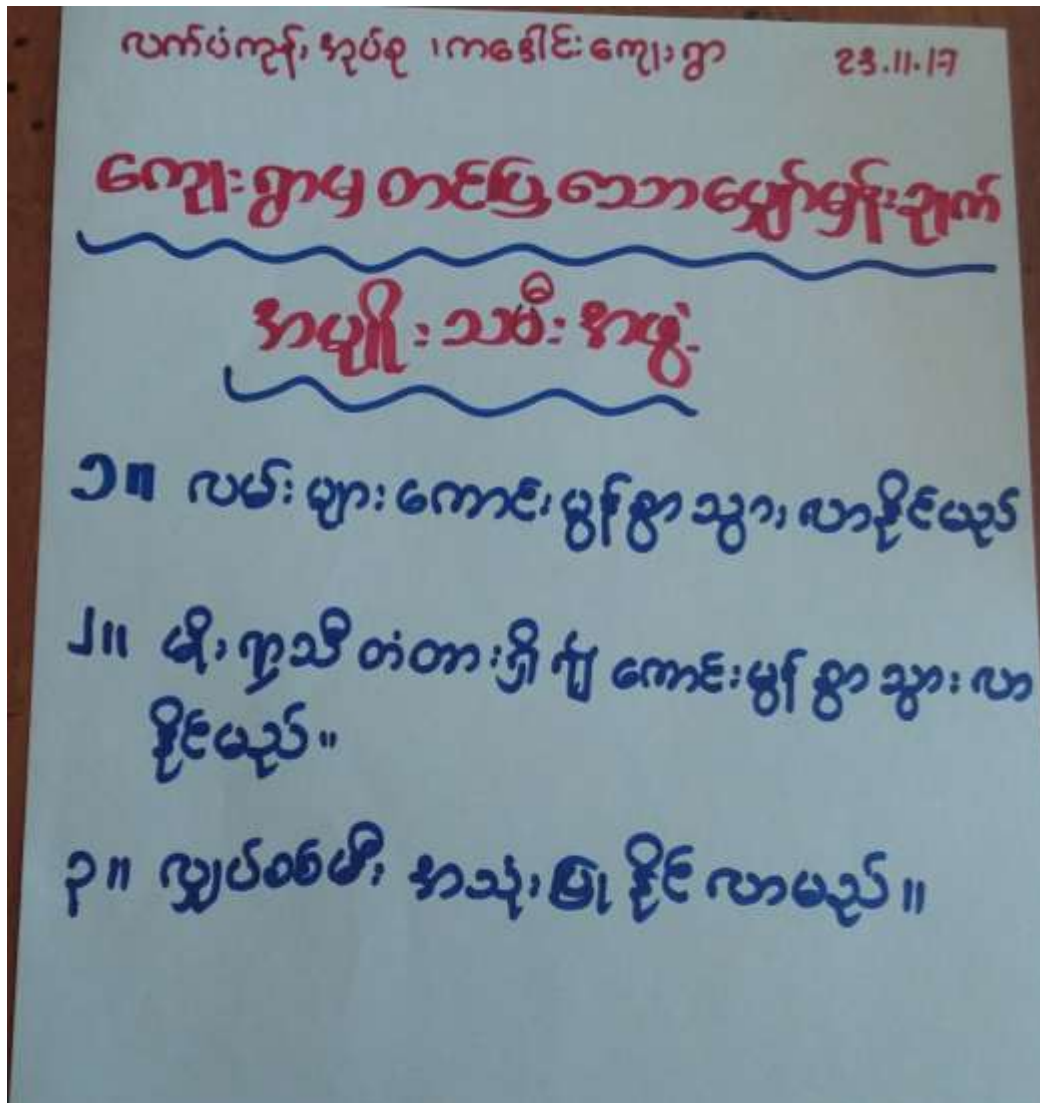 လက်ပံကုန်းအုပ်စု ၊ ကဒေါင်းကျေးရွာ 23.11.17
ကျေးရွာမှ တင်ပြသောမျှော်မှန်းချက်
အမျိုးသမီးအဖွဲ့
၁။ လမ်းများကောင်းမွန်စွာသွားလာနိုင်မည်
၂။ မိုးရာသီ တံတားရှိ၍ ကောင်းမွန်စွာသွားလာ
နိုင်မည်။
၃။ လျှပ်စစ်မီး အသုံးပြုနိုင်လာမည်။